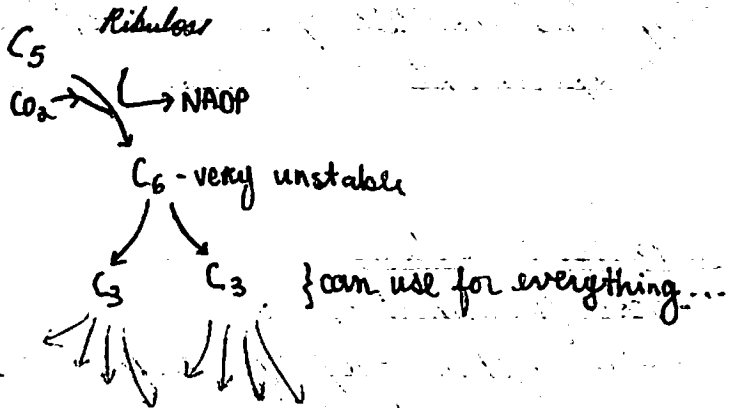 Ribulose
C5
CO2 → NADP
C6 - very unstable
C3 C3 } can use for everything...